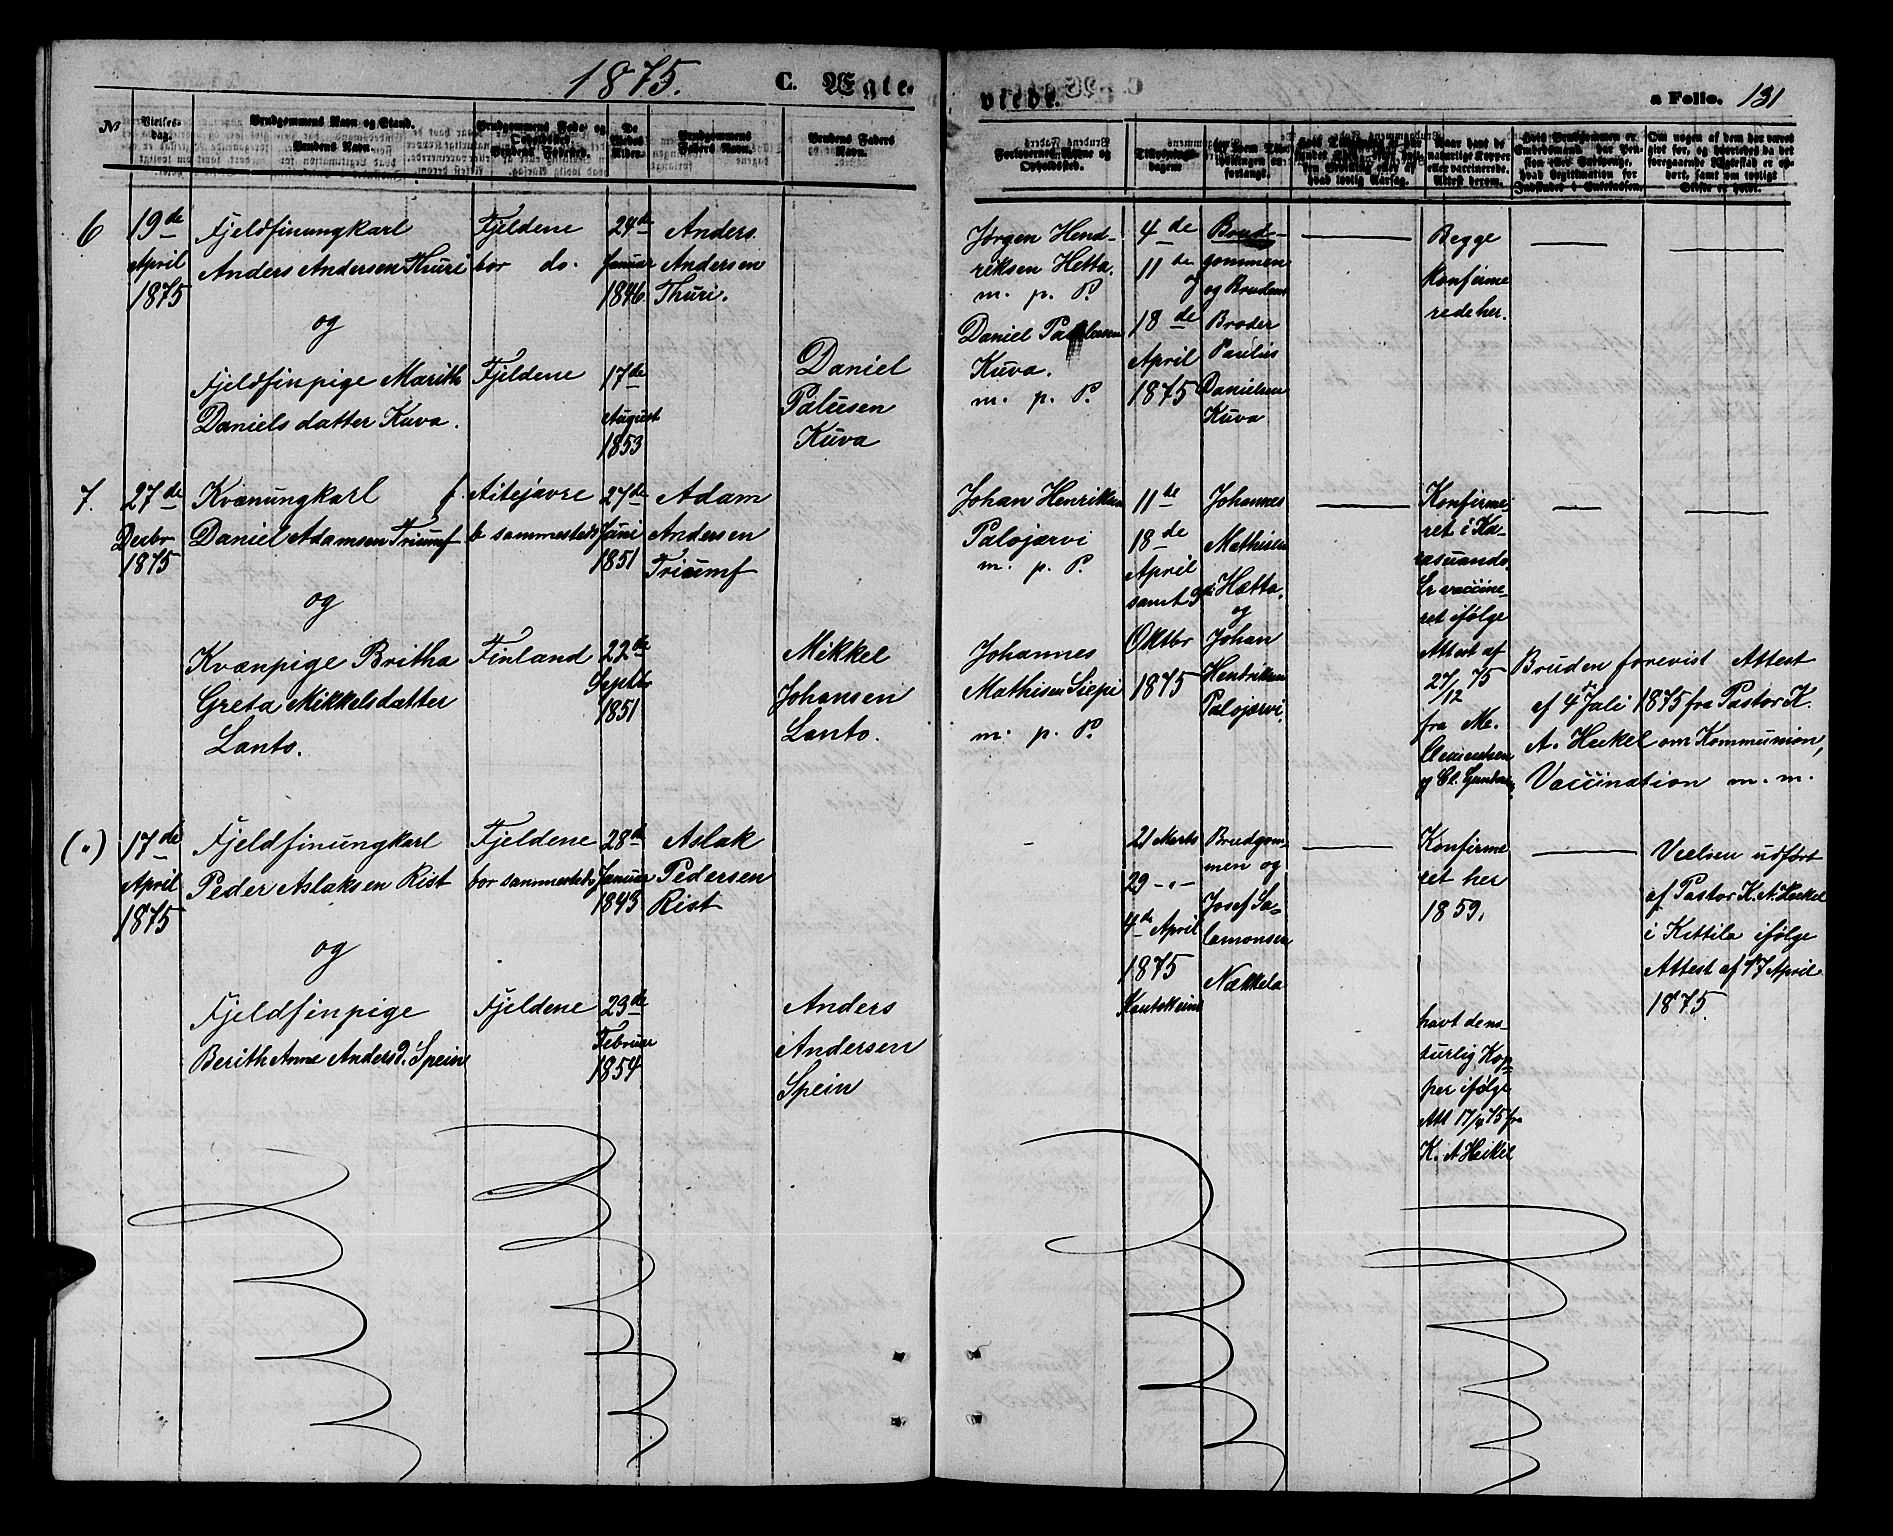 1875.
C. Ægte-
viede.
a Folio. 131
No
Vielses-
dag.
Brudgommens Navn og Stand.
Brudens Navn.
Brudgommens Føde- og
Opholdssted.
Brudens Fødested.
De
Viedes
Alder.
Brudgommens
Faders Navn.
Brudens Faders
Navn.
Forlovernes Navne og
Opholdssted.
Tillysnings-
dagene.
Af hvem Til-
lysningen er
forlangt.
Naar havt de
naturlige Kopper
eller vaccinerede.
Attest derom.
Hvis Brudgommen er
Embedsmand, har Pen-
sion eller Indkomme,
hvad Legitimation for
Indskudet i Enkekassen.
Om nogen af dem har været
gift før, og hvorledes da det
foregaaende Ægteskab er op-
hørt, samt om lovligt
Skifte er holdt.
6
19de
April
1875
Fjeldfinungkarl
Anders Andersen Thuri
og
Fjeldfinpige Marith
Danielsdatter Kuva.
Fjeldene
bor do.
Fjeldene
24de
Januar
1846
17de
August
1853
Anders
Andersen
Thuri.
Daniel
Palusen
Kuva
Jørgen Hend-
riksen Hetta.
m. p. P.
Daniel
Kuva.
m. p. P.
4de
11de
og
18de
April
1875
Brud-
gommen
og Brudens
Broder
Paulus
Danielsen
Kuva
Begge
konfirme
rede her.
7.
27de
Decbr
1875
Kvænungkarl
Daniel Adamsen Triumf
og
Kvænpige Britha
Greta Mikkelsdatter
Lanto.
f. Aitejavre
b sammesteds
Finland
27de
Juni
1851
22de
Septbr
1851
Adam
Andersen
Triumf
Mikkel
Johansen
Lanto.
Johan Henriksen
Palojærvi
m. p. P.
Johannes
Mathisen Siepi
m. p. P.
11de
18de
April
samt 3de
Oktbr
1875
Johannes
Mathisen
Hætta,
og
Johan
Hendriksen
Palojærvi.
Konfirme
ret i Ka-
resuando.
Er vaccine-
ret ifølge
Attest af
27/12 75
fra M.
Clementsen
og Cl.
Bruden forevist Attest
af 4 Juli 1875 fra Pastor K.
A. Heikel om Kommunion,
Vaccination m. m.
(.)
17de
April
1875
Fjeldfinungkarl
Peder Aslaksen Rist
og
Fjeldfinpige
Berith Anne Andersd. Spein
Fjeldene
bor sammesteds
Fjeldene
28de
Januar
1843
23de
Februar
1854
Aslak
Pedersen
Rist
Anders
Andersen
Spein
21 Marts
29 -"-
4de April
1875
Kautokeino
Brudgom-
men og
Josef Sa-
lamonsen
Nækkela
Konfirme
ret her
1859.
havt de na-
turlig Kop-
per ifølge
Att 17/4 75 fra
K. A Heikel
Vielsen udført
af Pastor K. A. Heikel
i Kittila ifølge
Attest af 17 April
1875.